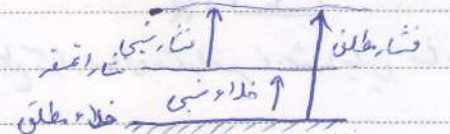 فشار نسبی فشار مطلق
فشار اتمسفر
خلاء نسبی
خلاء مطلق